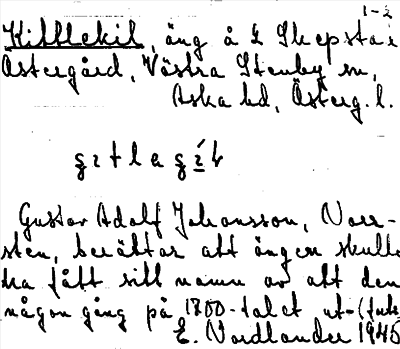 1-2
Kittlekil, äng å L Skepstad
Östergård, Västra Stenby sn,
Aska hd, Österg. l.
Gustav Adolf Johansson, Norr-
sten, berättar att ängen skulle
ha fått sitt namn av att den
någon gång på 1700-talet ut-
E. Nordlander 1945